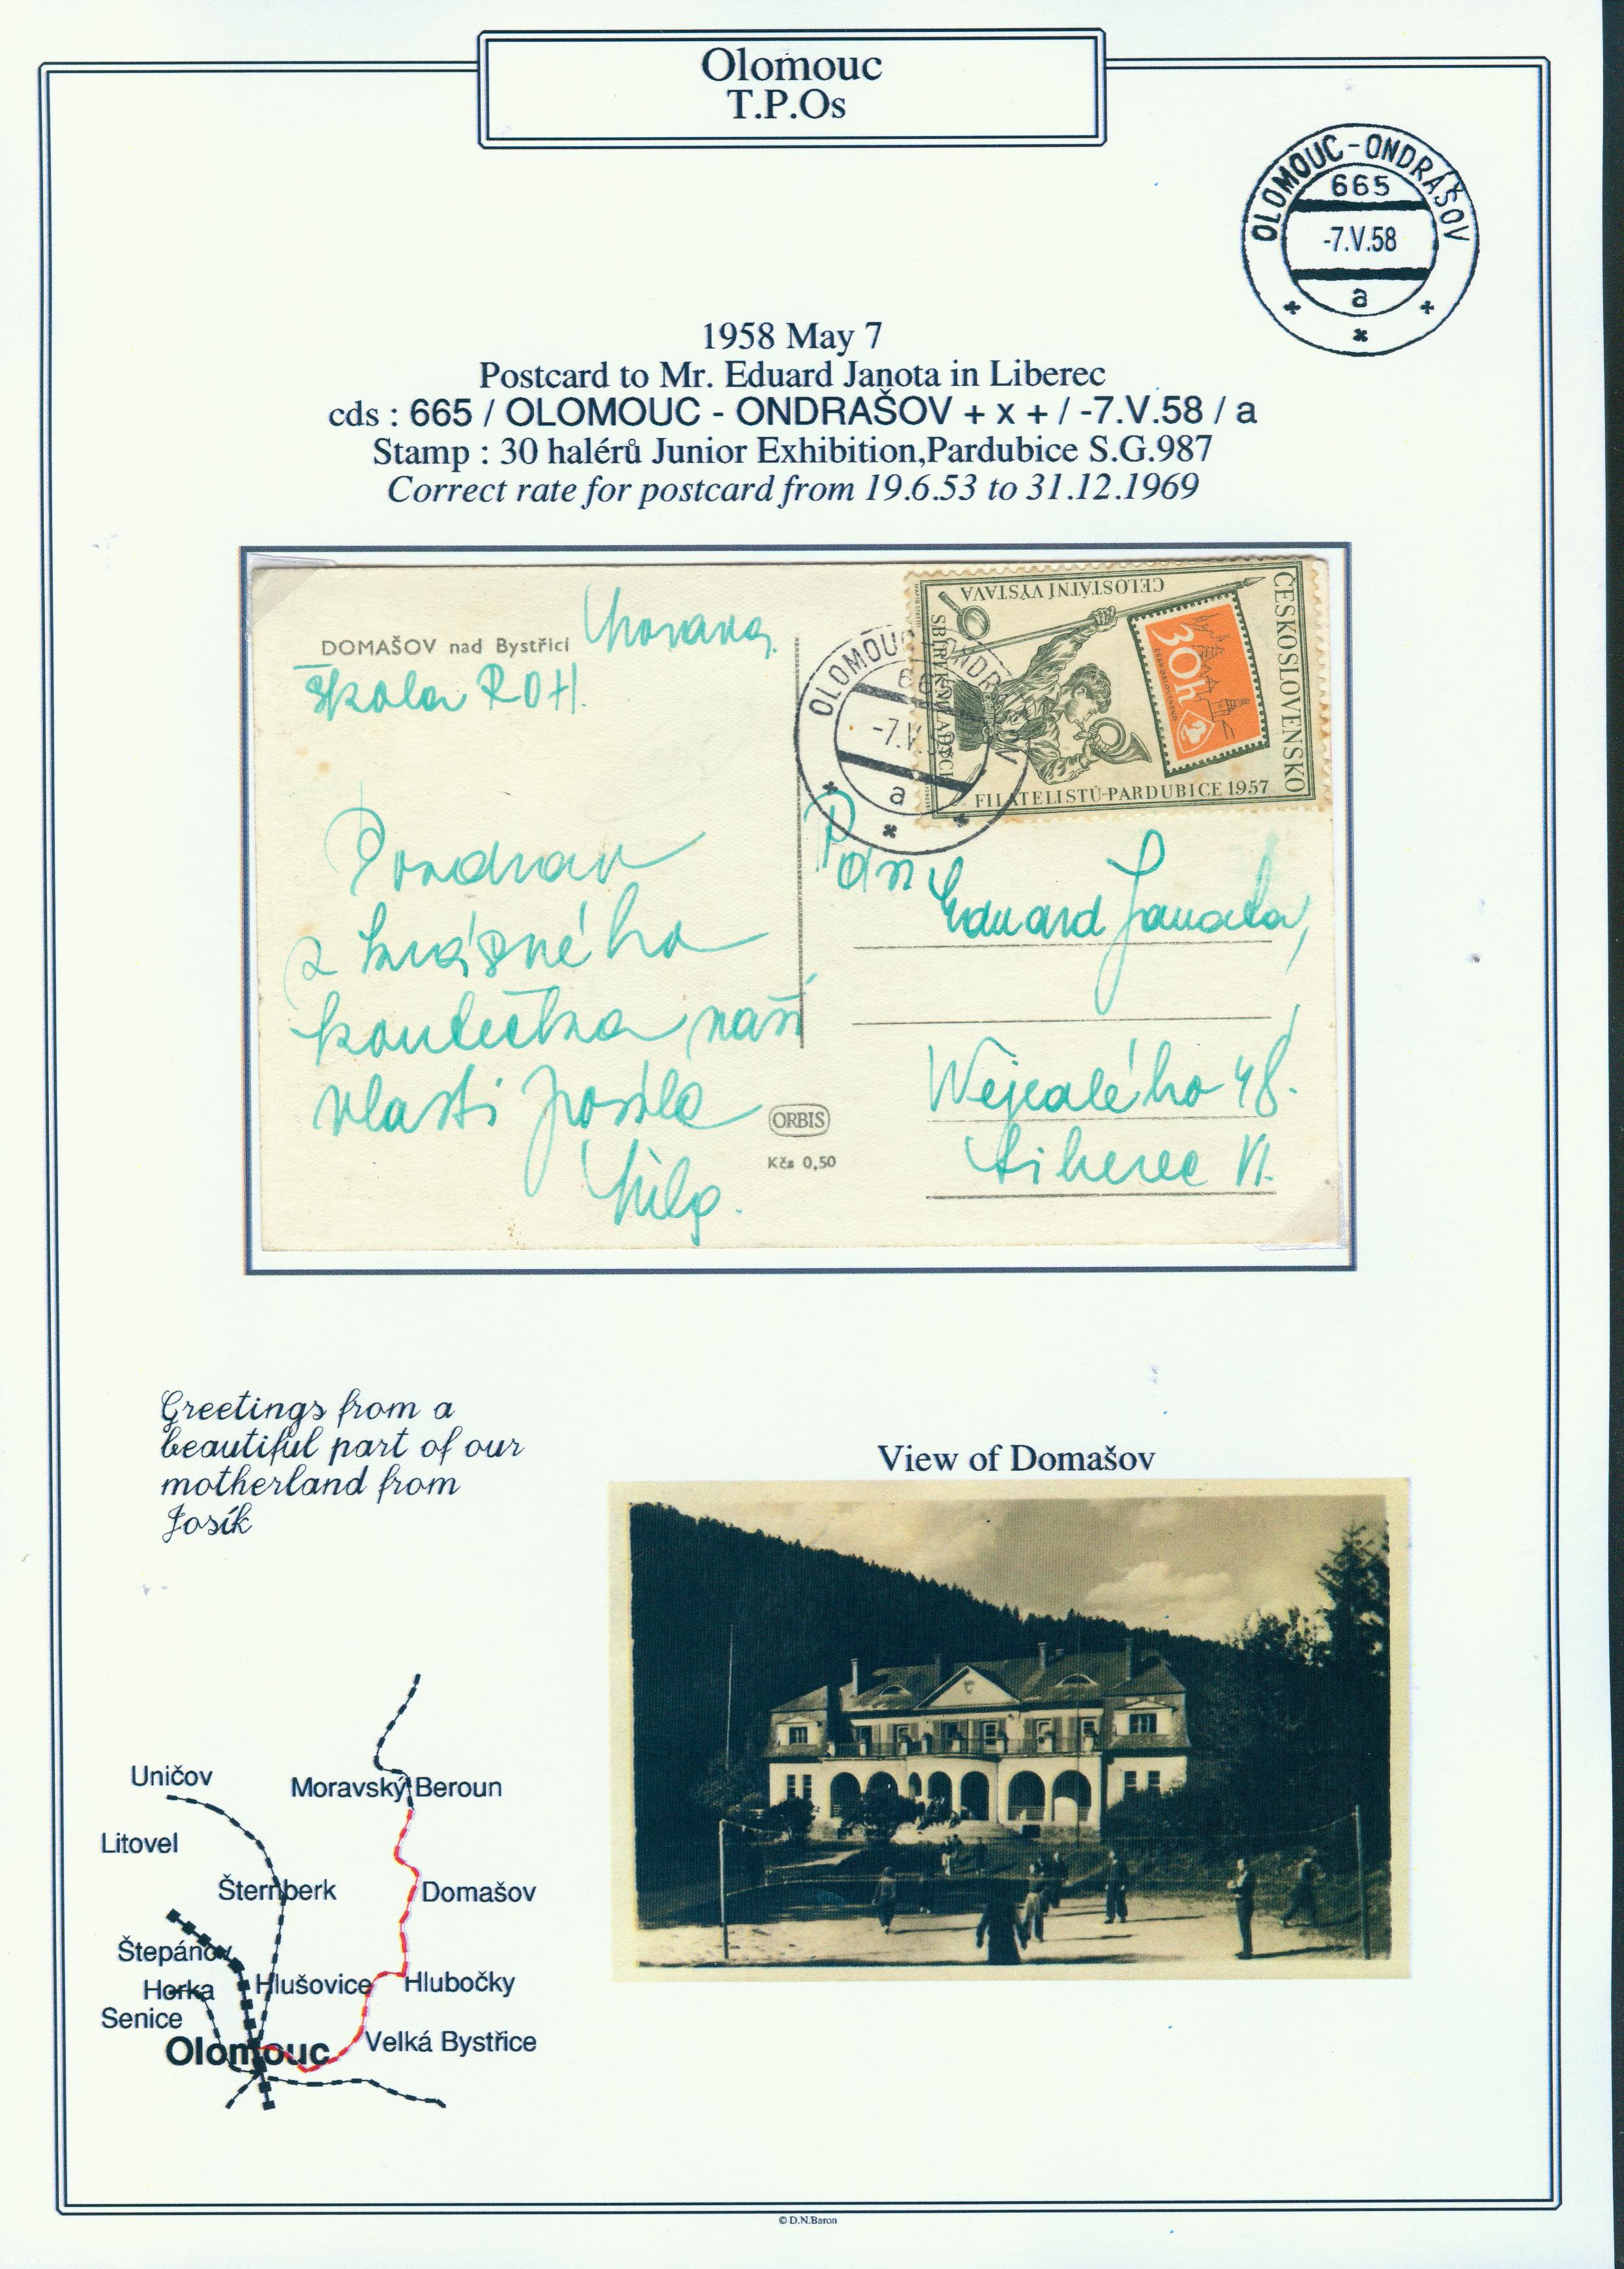 Olomouc
T.P.Os
OLOMOUC-ONDRÁŠOV
665
-7.V.58
a
1958 May 7
Postcard to Mr. Eduard Janota in Liberec
cds : 665 / OLOMOUC - ONDRAŠOV + x + / -7.V.58 / a
Stamp : 30 halérů Junior Exhibition,Pardubice S.G.987
Correct rate for postcard from 19.6.53 to 31.12.1969
DOMAŠOV nad Bystřicí
Škola ROH.
CELOSTÁTNÍ VÝSTAVA
SBÍREK MLADÝCH
FILATELISTŮ-PARDUBICE 1957
ČESKOSLOVENSKO
30h
ČESKOSLOVENSKO
OLOMOUC ONDR OV
665
-7.V.
a
Pozdrav
z krásného
koutečka naší
vlasti posílá
Pan
Eduard Janota,
48.
Liberec VI.
ORBIS
Kčs 0,50
Greetings from a
beautiful part of our
motherland from
Josík
View of Domašov
Uničov
Moravský Beroun
Litovel
Šternberk
Domašov
Štepánov
Horka
Hlušovice
Hlubočky
Senice
Olomouc
Velká Bystřice
© D.N.Baron